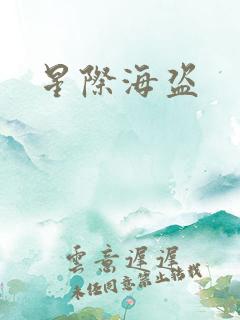 星際海盜
雲意遲遲
未經同意禁止轉載